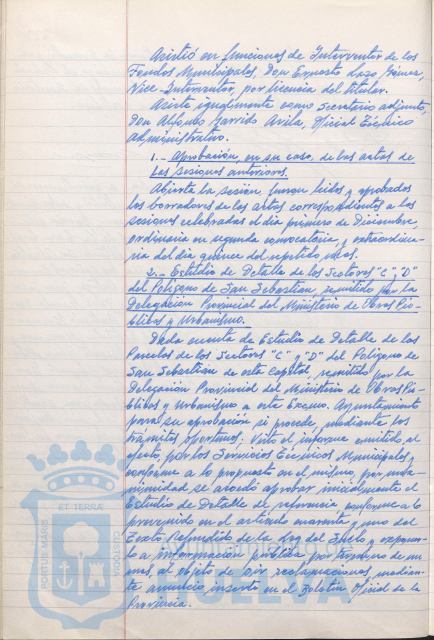 Asistió en funciones de Interventor de los
Fondos Municipales, Don Ernesto Lazo Gómez,
Vice-Interventor, por licencia del titular.
Asiste igualmente como Secretario adjunto,
Don Alfonso Garrido Avila, Oficial Técnico
Administrativo.
1.- Aprobación, en su caso, de las actas de
las sesiones anteriores.
Abierta la sesión, fueron leídos y aprobados
los borradores de las actas correspondientes a las
sesiones celebradas el día primero de Diciembre,
ordinaria en segunda convocatoria, y extraordina-
ria del día quince del repetido mes.
2.- Estudio de Detalle de los Sectores "C", "D"
del Polígono de San Sebastian, remitido por la
Delegación Provincial del Ministerio de Obras Pú-
blicas y Urbanismo.
Dada cuenta de Estudio de Detalle de las
Parcelas de los Sectores "C" y "D" del Polígono de
San Sebastian de esta Capital, remitido por la
Delegación Provincial del Ministerio de Obras Pú-
blicas y Urbanismo a este Excmo. Ayuntamiento
para su aprobación si procede, mediante los
trámites oportunos. Visto el informe emitido al
efecto, por los Servicios Técnicos Municipales y
conforme a lo propuesto en el mismo, por una-
nimidad se acordó aprobar inicialmente el
Estudio de Detalle de referencia, conforme a lo
prevenido en el artículo cuarenta y uno del
Texto Refundido de la Ley del Suelo y exponer-
lo a información pública por término de un
mes, al objeto de oir reclamaciones, median-
te anuncio inserto en el Boletín Oficial de la
Provincia.
PORTUS MARIS
ET TERRÆ
CUSTODIA
HUELVA